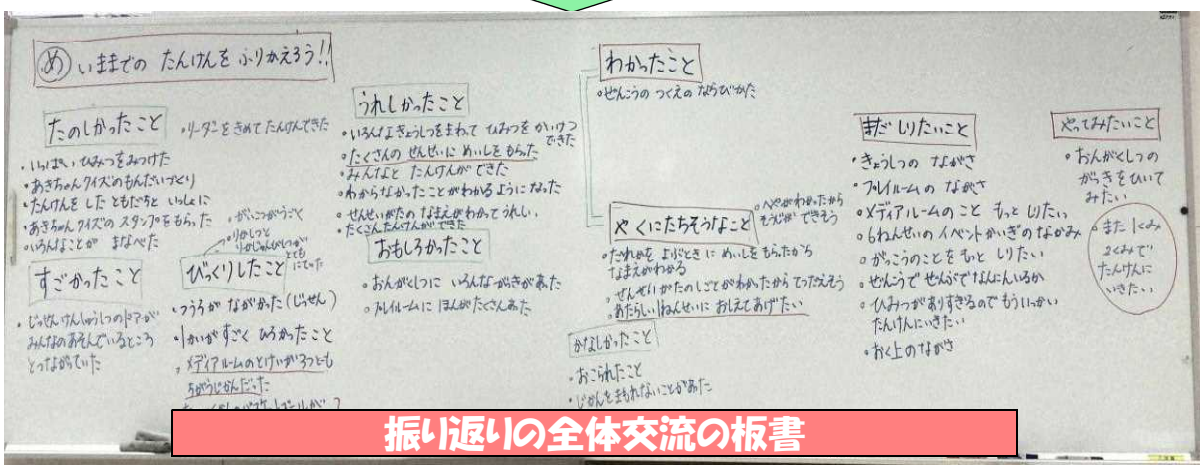 め いままでの たんけんを ふりかえろう!!
たのしかったこと
・リーダーを きめて たんけんできた
・いっぱい ひみつをみつけた
・あきちゃんクイズのもんだいづくり
・たんけんを した ともだちと いっしょに
・あきちゃんクイズの スタンプをもらった
・いろんなことが まなべた
すごかったこと
・じっせんけんしゅうしつのドアが
みんなのあそんでいるところ
とつながっていた
びっくりしたこと
・がっこうがうごく
・りかしつと
とても
にていた
・つうろが ながかった(じっせん)
・1かいが すごく ひろかったこと
・メディアルームのとけいが3つとも
ちがうじかんだった
うれしかったこと
・いろんなきょうしつをまわって ひみつを かいけつ
できた
・たくさんの せんせいに めいしを もらった
・みんなと たんけんが できた
・わからなかったことがわかるように なった
・せんせいがたの なまえがわかって うれしい
・たくさんたんけんができた
おもしろかったこと
・おんがくしつに いろんながっきがあった
・プレイルームに ほんがたくさんあった
わかったこと
・せんこうの つくえの ならびかた
やくにたちそうなこと
・へやがわかったから
そうじが できそう
・だれかを よぶときに めいしを もらったから
なまえがわかる
・せんせいがたのしごとがわかったから てつだえそう
・あたらしい1ねんせいに おしえてあげたい
かなしかったこと
・おこられたこと
・じかんをまもれないことがあった
まだ しりたいこと
・きょうしつの ながさ
・プレイルームの ながさ
・メディアルームのこと もっと しりたい
・6ねんせいの イベントかいぎのなかみ
・がっこうのことを もっと しりたい
・せんこうで せんぶでなんにんいるか
・ひみつがありすぎるので もういっかい
たんけんにいきたい
・おく上のながさ
やってみたいこと
・おんがくしつの
がっきをひいて
みたい
・また 1くみ
2くみで
たんけんに
いきたい
振り返りの全体交流の板書